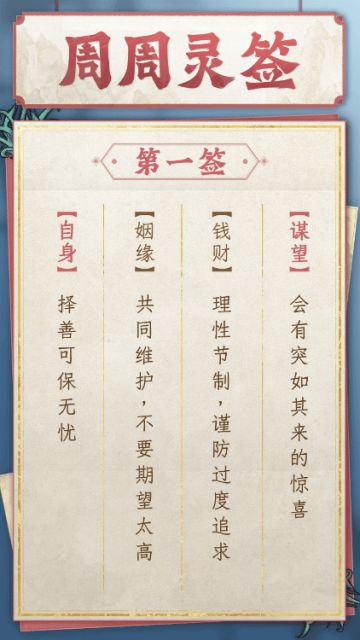 周周灵签
第一签
【谋望】会有突如其来的惊喜
【钱财】理性节制，谨防过度追求
【姻缘】共同维护，不要期望太高
【自身】择善可保无忧